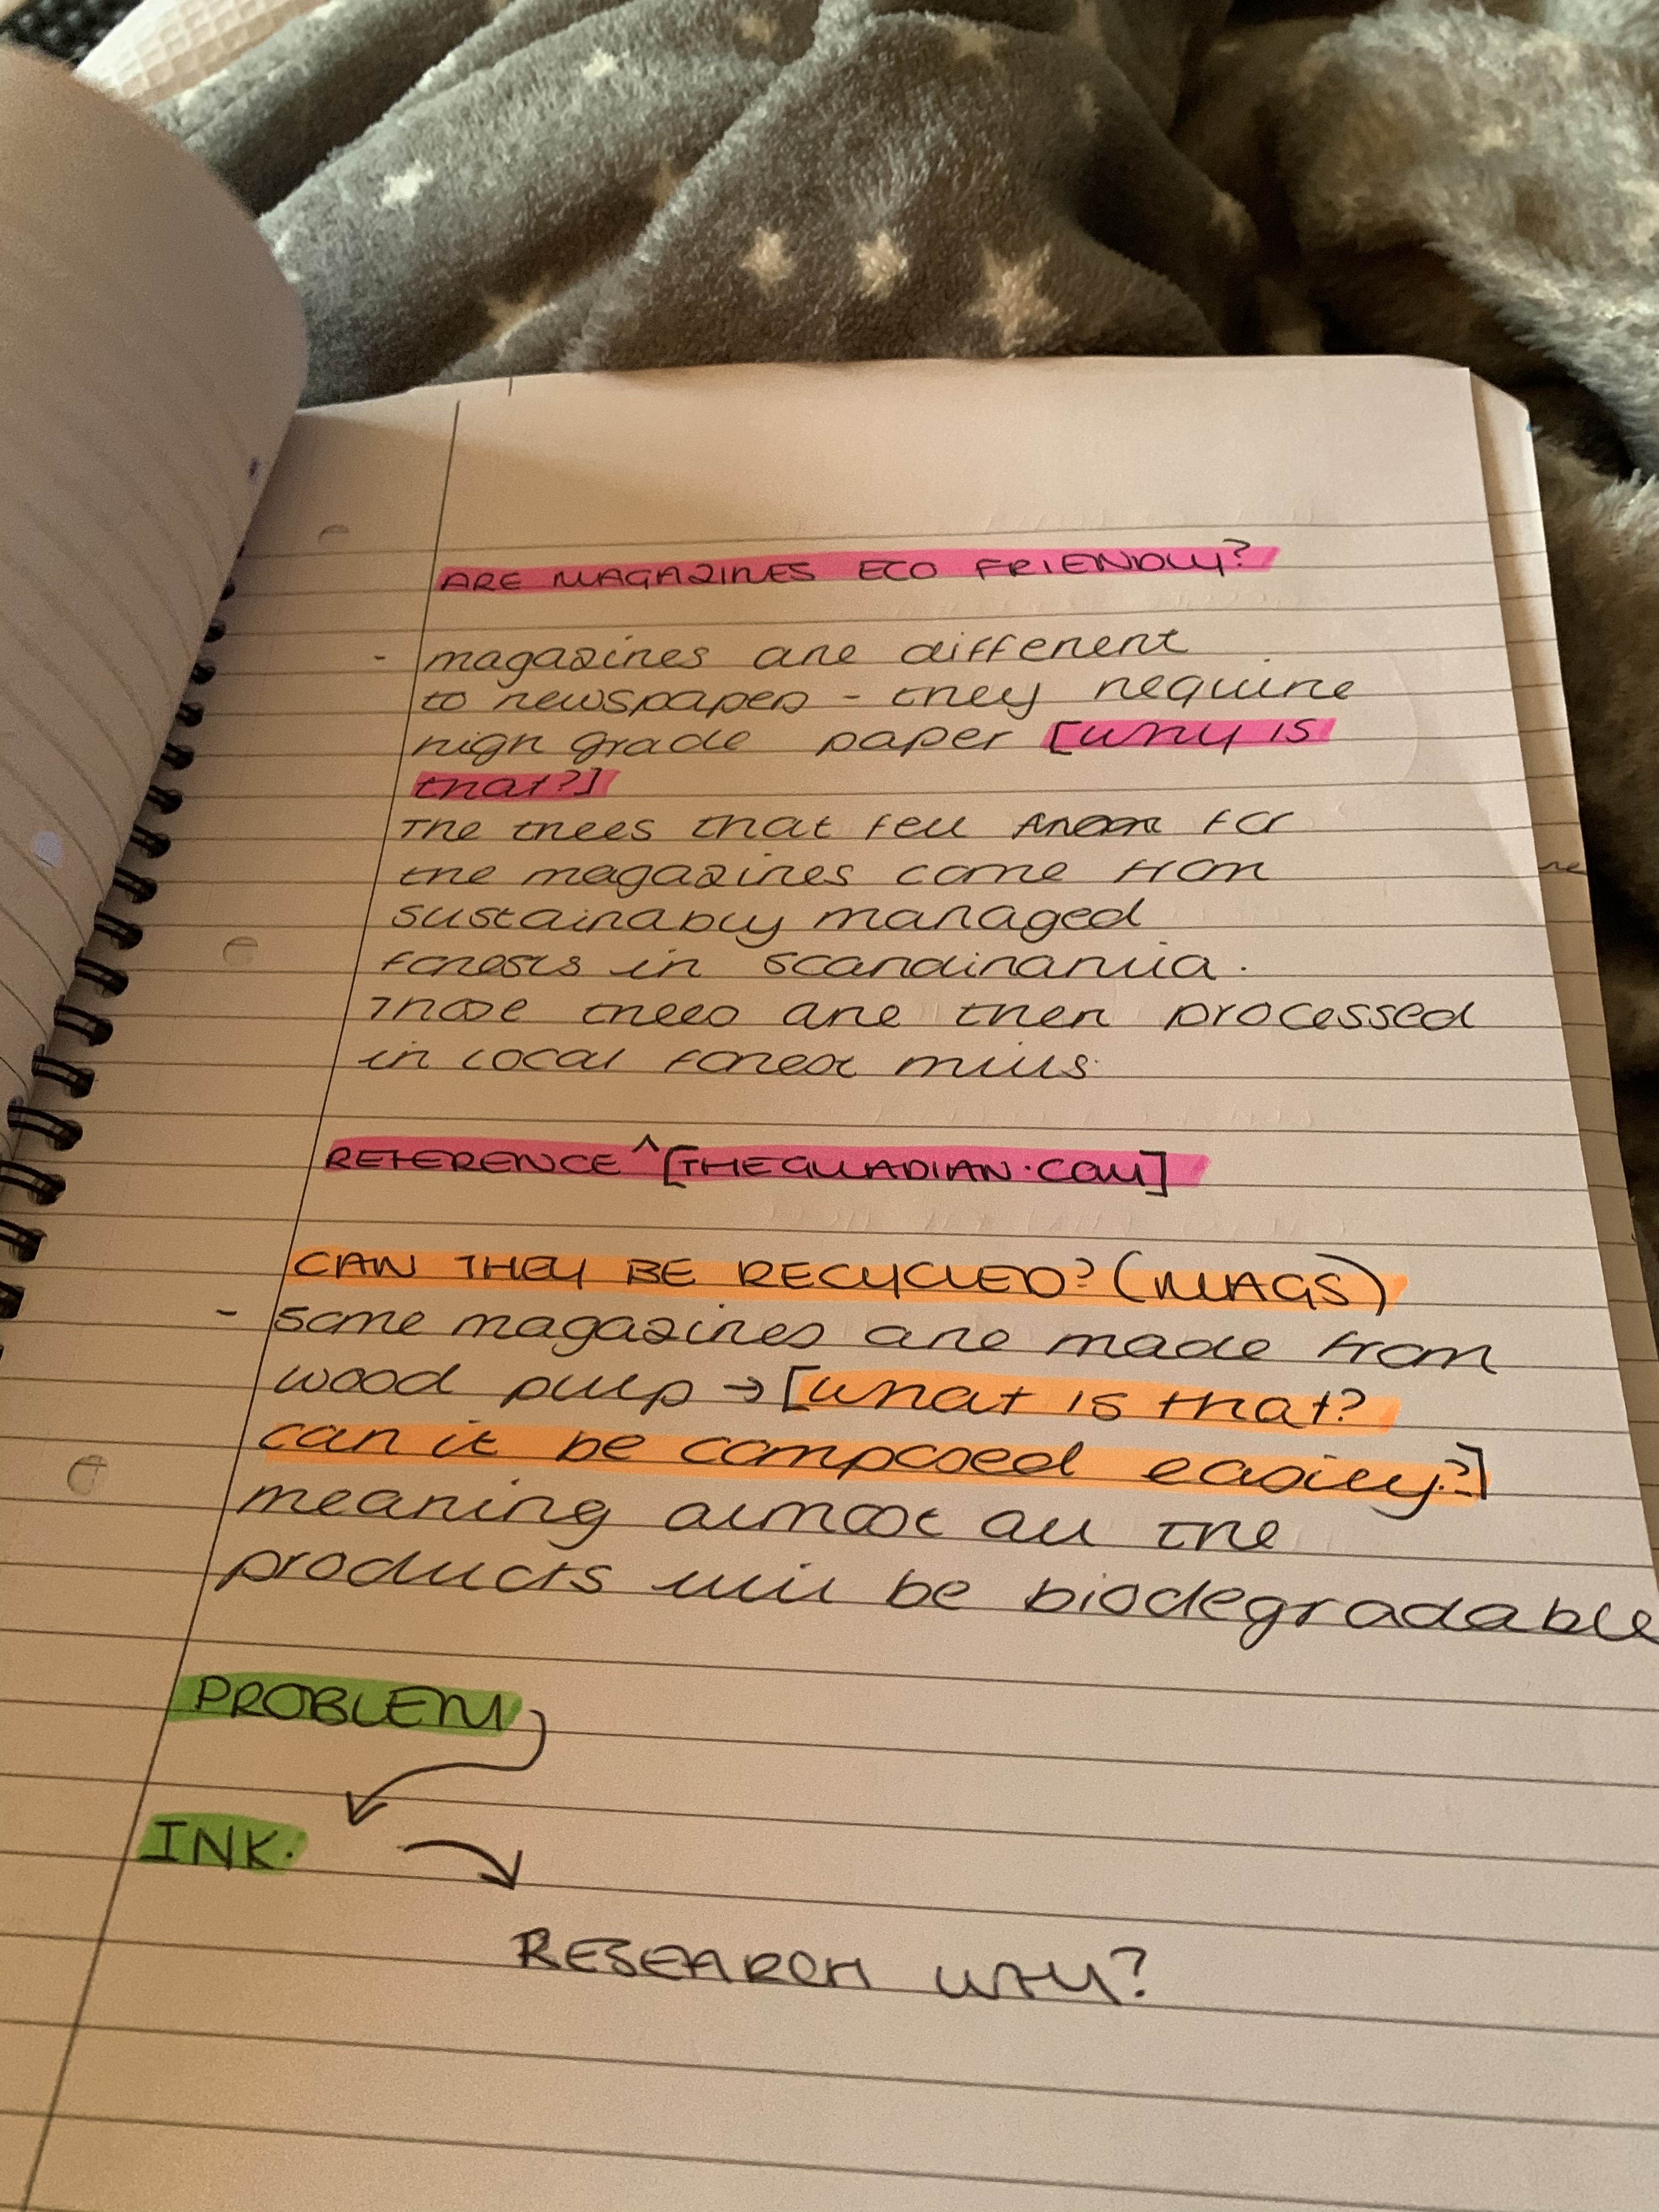 ARE MAGAZINES ECO FRIENDLY?
- magazines are different
to newspapers - they require
high grade paper [why is
that?]
The trees that fell for
the magazines come from
sustainably managed
forests in scandinavia.
Those trees are then processed
in local forest mills.
REFERENCE ^ [THEGUADIAN.COM]
CAN THEY BE RECYCLED? (MAGS)
- some magazines are made from
wood pulp → [what is that?
can it be composed easily?]
meaning almost all the
products will be biodegradable
PROBLEM
INK.
RESEARCH WHY?